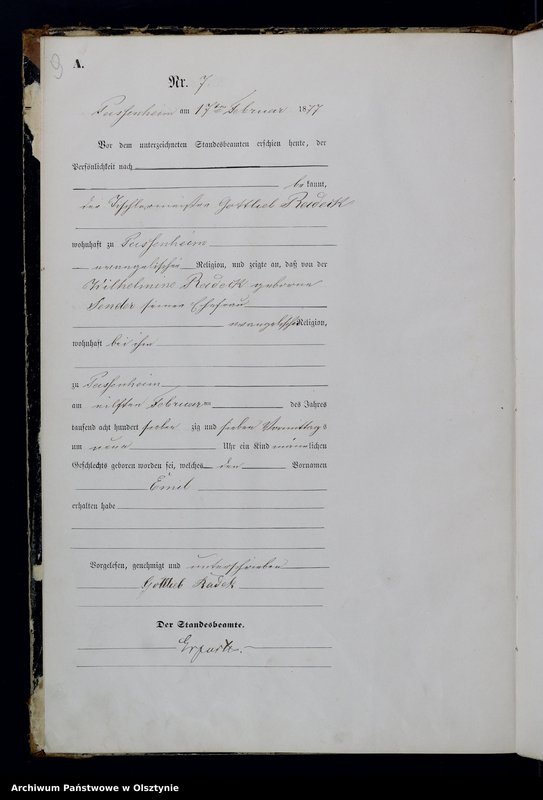 9
A.
Nr. 7.
Passenheim am 17ten Februar 1877
Vor dem unterzeichneten Standesbeamten erschien heute, der
Persönlichkeit nach
be kannt,
der Tischlermeister Gottlieb Radeik
wohnhaft zu Passenheim
evangelischer Religion, und zeigte an, daß von der
Wilhelmine Radeck geborene
seiner Ehefrau
evangelischer Religion,
wohnhaft bei ihm
zu Passenheim
am eilften Februar des Jahres
tausend acht hundert sieben zig und sieben Vormittags
um neun Uhr ein Kind männlichen
Geschlechts geboren worden sei, welches den Vornamen
Emil
erhalten habe
Vorgelesen, genehmigt und unterschrieben
Gottlieb Radek
Der Standesbeamte.
Archiwum Państwowe w Olsztynie